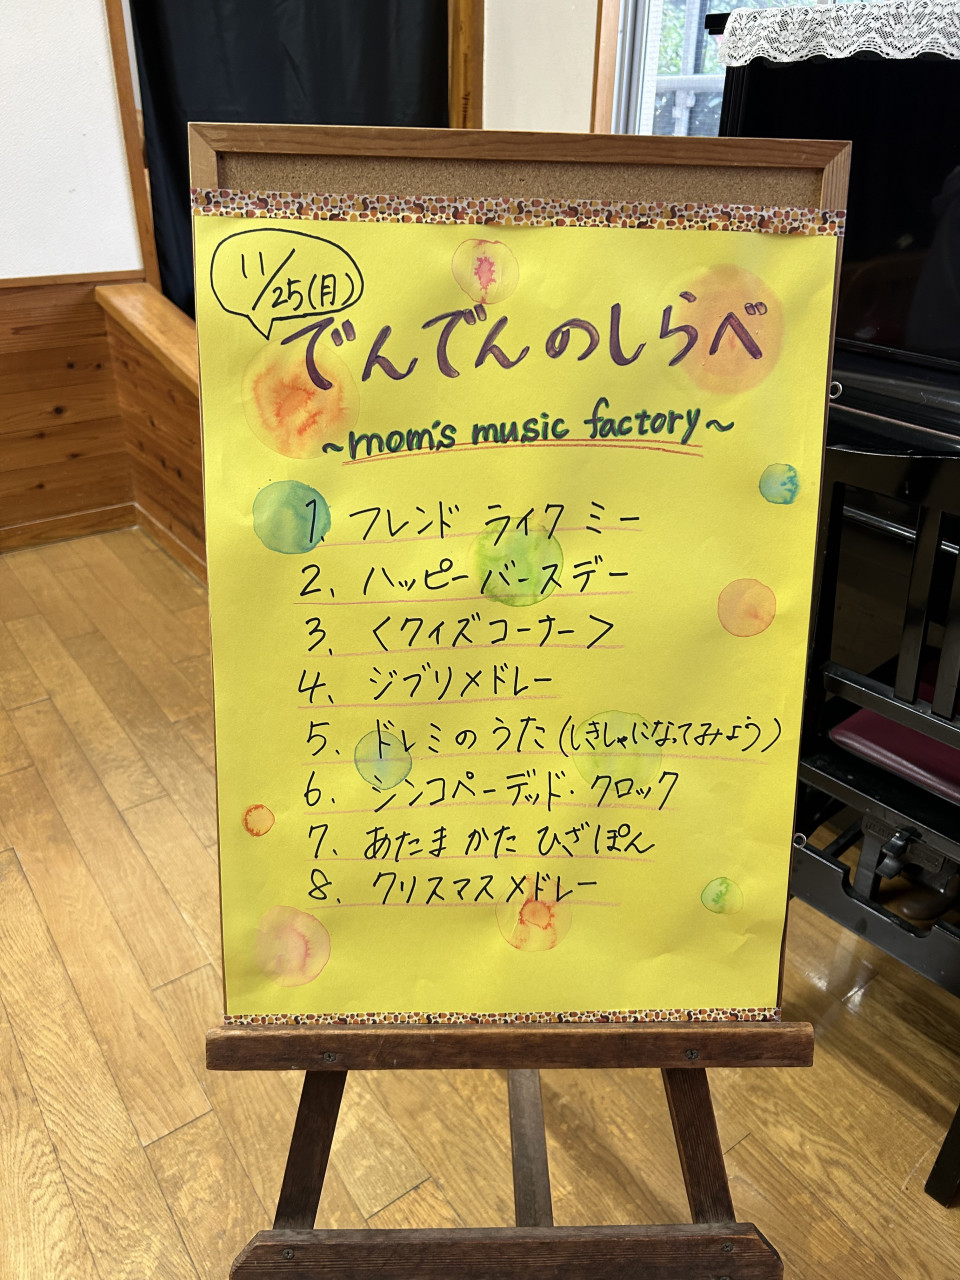 11/25(月)
でんでんのしらべ
~mom's music factory~
1、フレンド ライク ミー
2、ハッピーバースデー
3、〈クイズコーナー〉
4、ジブリメドレー
5、ドレミのうた(しきしゃになってみよう)
6、シンコペーデッド・クロック
7、あたま かた ひざ ぽん
8、クリスマスメドレー